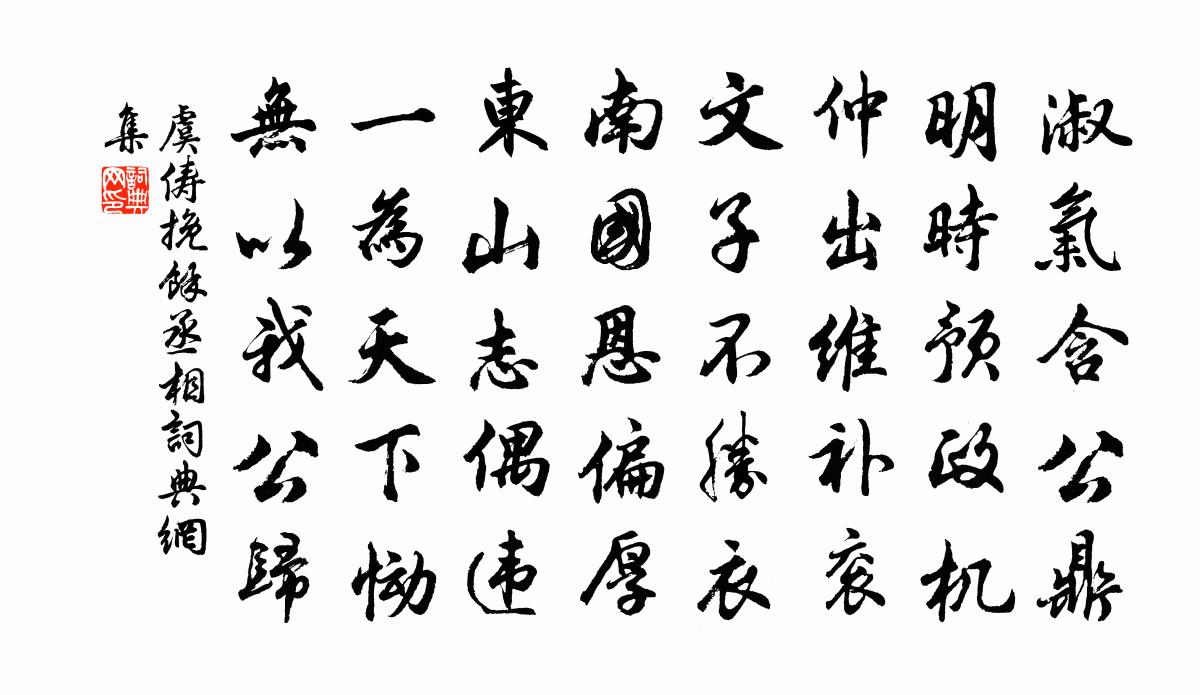 淑氣含公鼎
明時預政机
仲出维补衮
文子不勝衣
南國恩偏厚
東山志偶违
一為天下恸
無以我公歸
虞儔挽餘丞相詞典網
集
詞典
网印